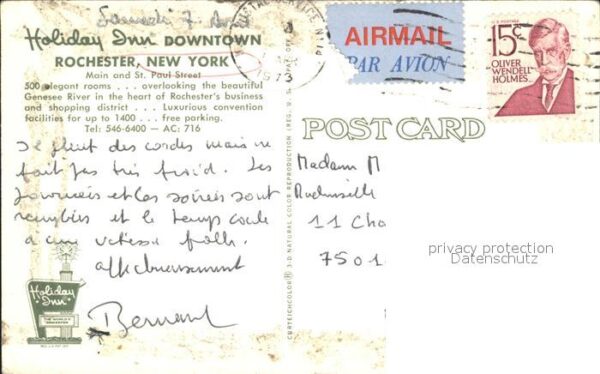 Samedi 7 Avril
Holiday Inn DOWNTOWN
ROCHESTER, NEW YORK
Main and St. Paul Street
500 elegant rooms . . . overlooking the beautiful
Genesee River in the heart of Rochester's business
and shopping district . . . . Luxurious convention
facilities for up to 1400 . . . free parking
Tel: 546-6400 — AC: 716
Il pleut des cordes mais ne
fait pas très froid. Les
journées et les soirées sont
remplies et le temps coule
à une vitesse folle.
affectueusement
Bernard
Holiday
Inn
CURTEICHCOLOR® 3-D NATURAL COLOR REPRODUCTION (REG. U.S.
1973
AIRMAIL
PAR AVION
U.S. POSTAGE
15c
OLIVER
WENDELL
HOLMES
POST CARD
Madame M
11 Cha
7501
privacy protection
Datenschutz